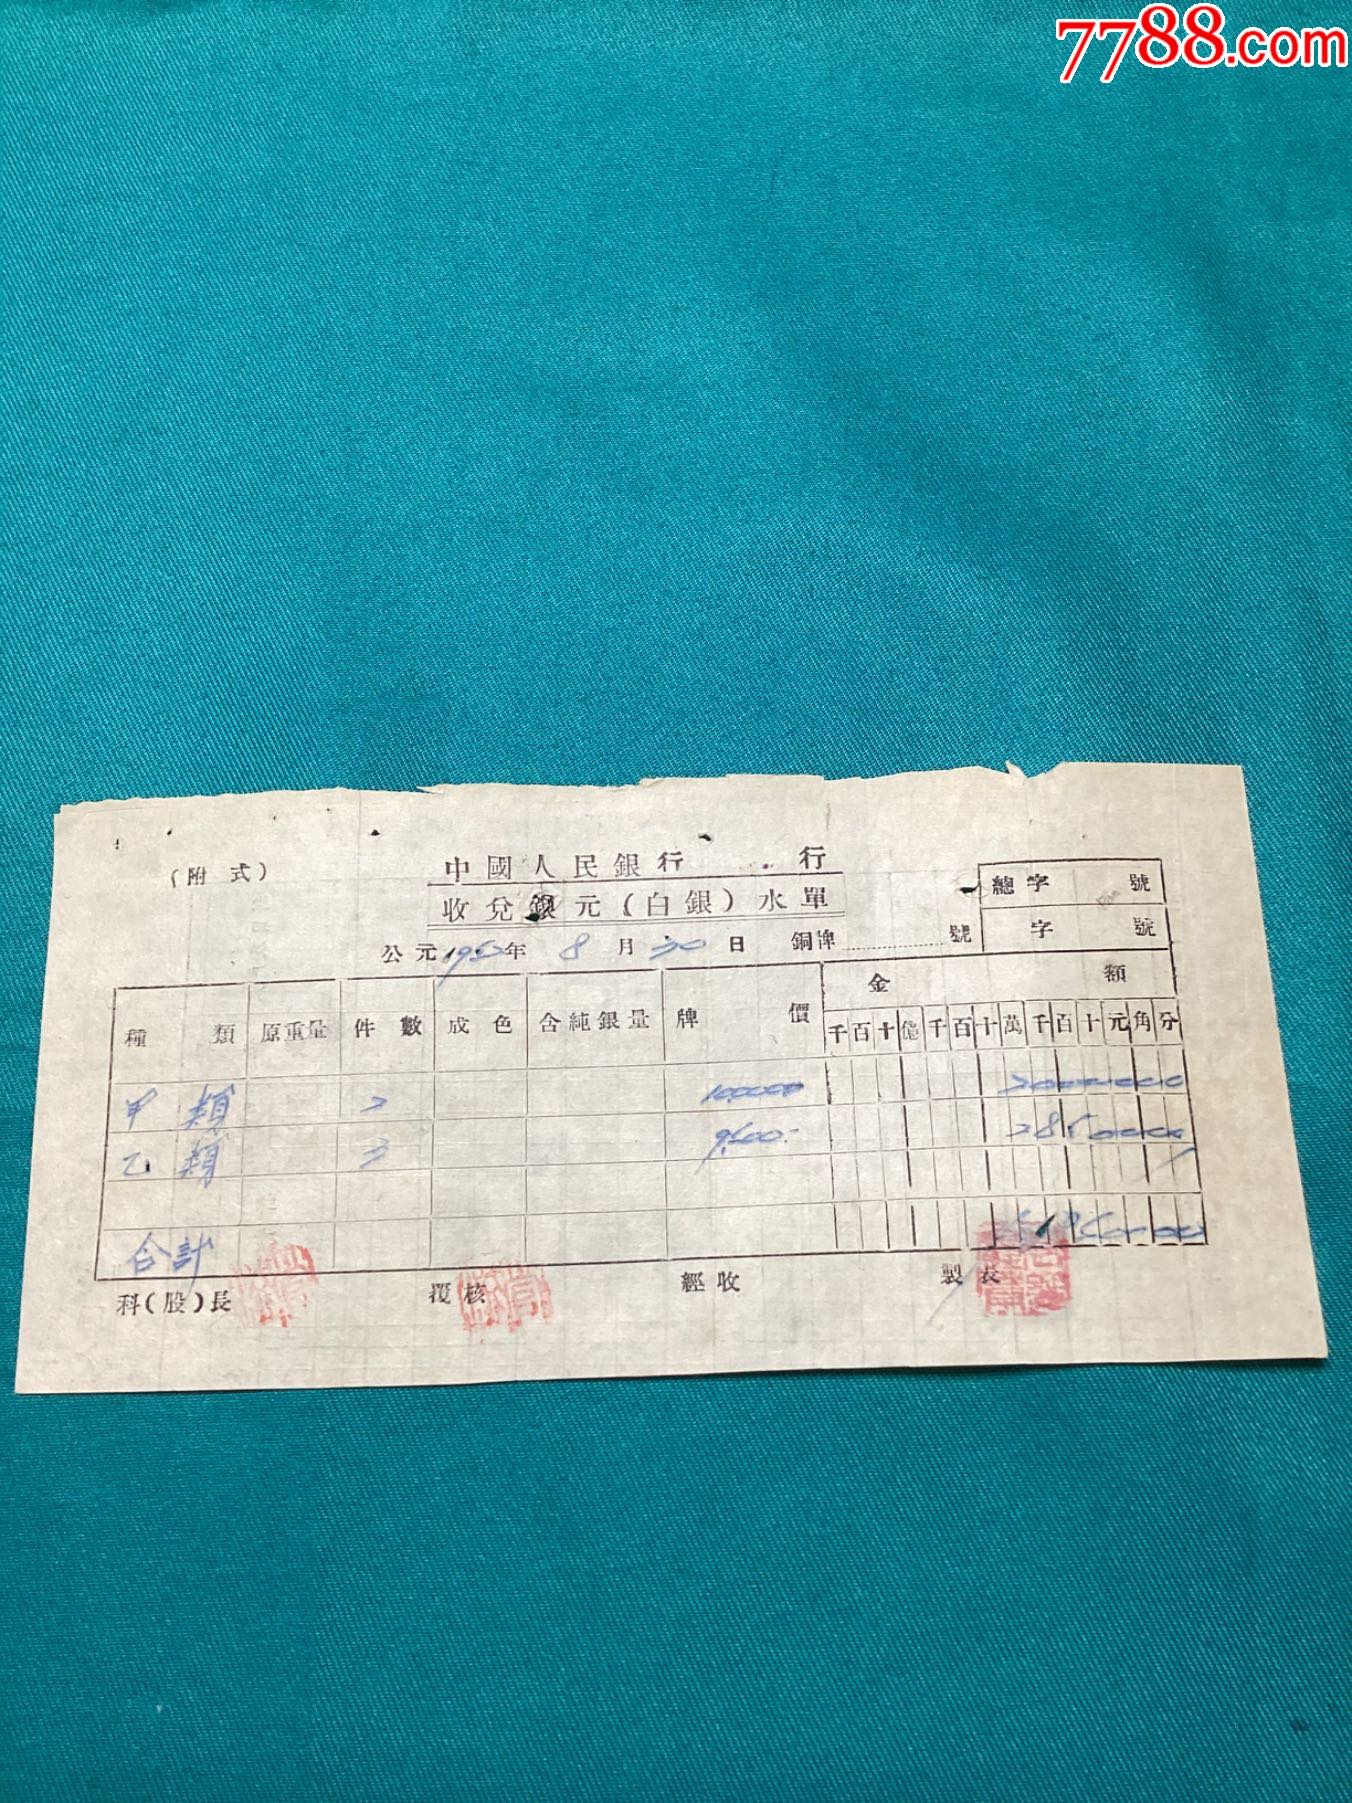 7788.com
(附式)
中國人民銀行 行
收兌銀元(白銀)水單
總字 號
字 號
公元1950年 8 月 30 日 銅牌 號
種類 原重量 件數 成色 含純銀量 牌價 金額
千百十億千百十萬千百十元角分
甲類 2 2000000
乙類 3 9,500.- 2850000
合計
科(股)長 覆核 經收 製表